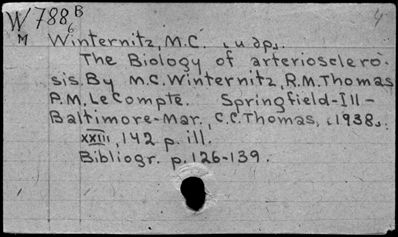 W788 B
6
M Winternitz, M.C. [и др].
The Biology of arteriosclero-
sis. By M.C. Winternitz, R.M. Thomas
P.M. LeCompte. Springfield-Ill-
Baltimore-Mar., C.C. Thomas, [1938].
XXIII, 142 p. ill.
Bibliogr. p. 126-139.